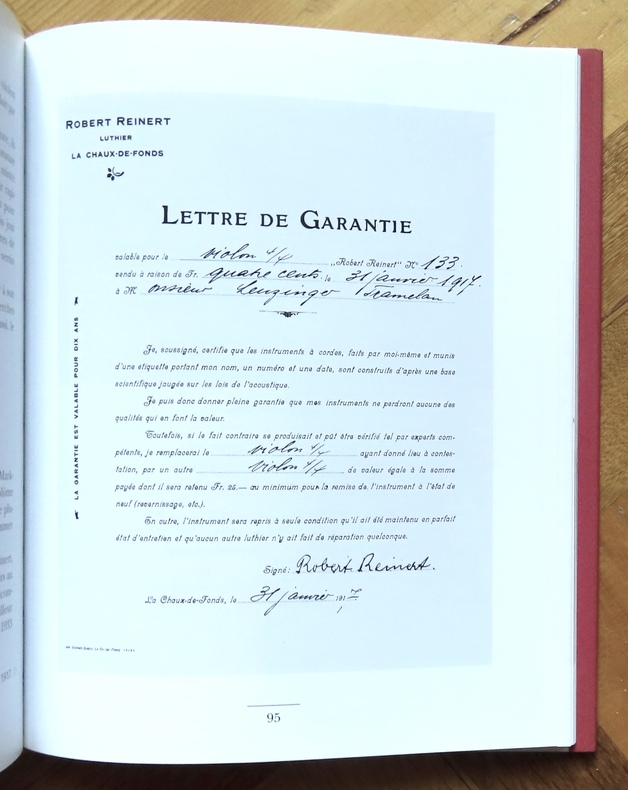 ROBERT REINERT
LUTHIER
LA CHAUX-DE-FONDS
LETTRE DE GARANTIE
valable pour le violon 4/4 „Robert Reinert" No 133.
vendu à raison de Fr. quatre cents le 31 janvier 1917.
à Monsieur Leuzinger Tramelan
LA GARANTIE EST VALABLE POUR DIX ANS
Je, soussigné, certifie que les instruments à cordes, faits par moi-même et munis
d'une étiquette portant mon nom, un numéro et une date, sont construits d'après une base
scientifique jaugée sur les lois de l'acoustique.
Je puis donc donner pleine garantie que mes instruments ne perdront aucune des
qualités qui en font la valeur.
Toutefois, si le fait contraire se produisait et pût être vérifié tel par experts com-
pétents, je remplacerai le violon 4/4 ayant donné lieu à contes-
tation, par un autre violon 4/4 de valeur égale à la somme
payée dont il sera retenu Fr. 25.— au minimum pour la remise de l'instrument à l'état de
neuf (recernissage, etc.).
En outre, l'instrument sera repris à seule condition qu'il ait été maintenu en parfait
état d'entretien et qu'aucun autre luthier n'y ait fait de réparation quelconque.
Signé: Robert Reinert.
La Chaux-de-Fonds, le 31 janvier 1917
95